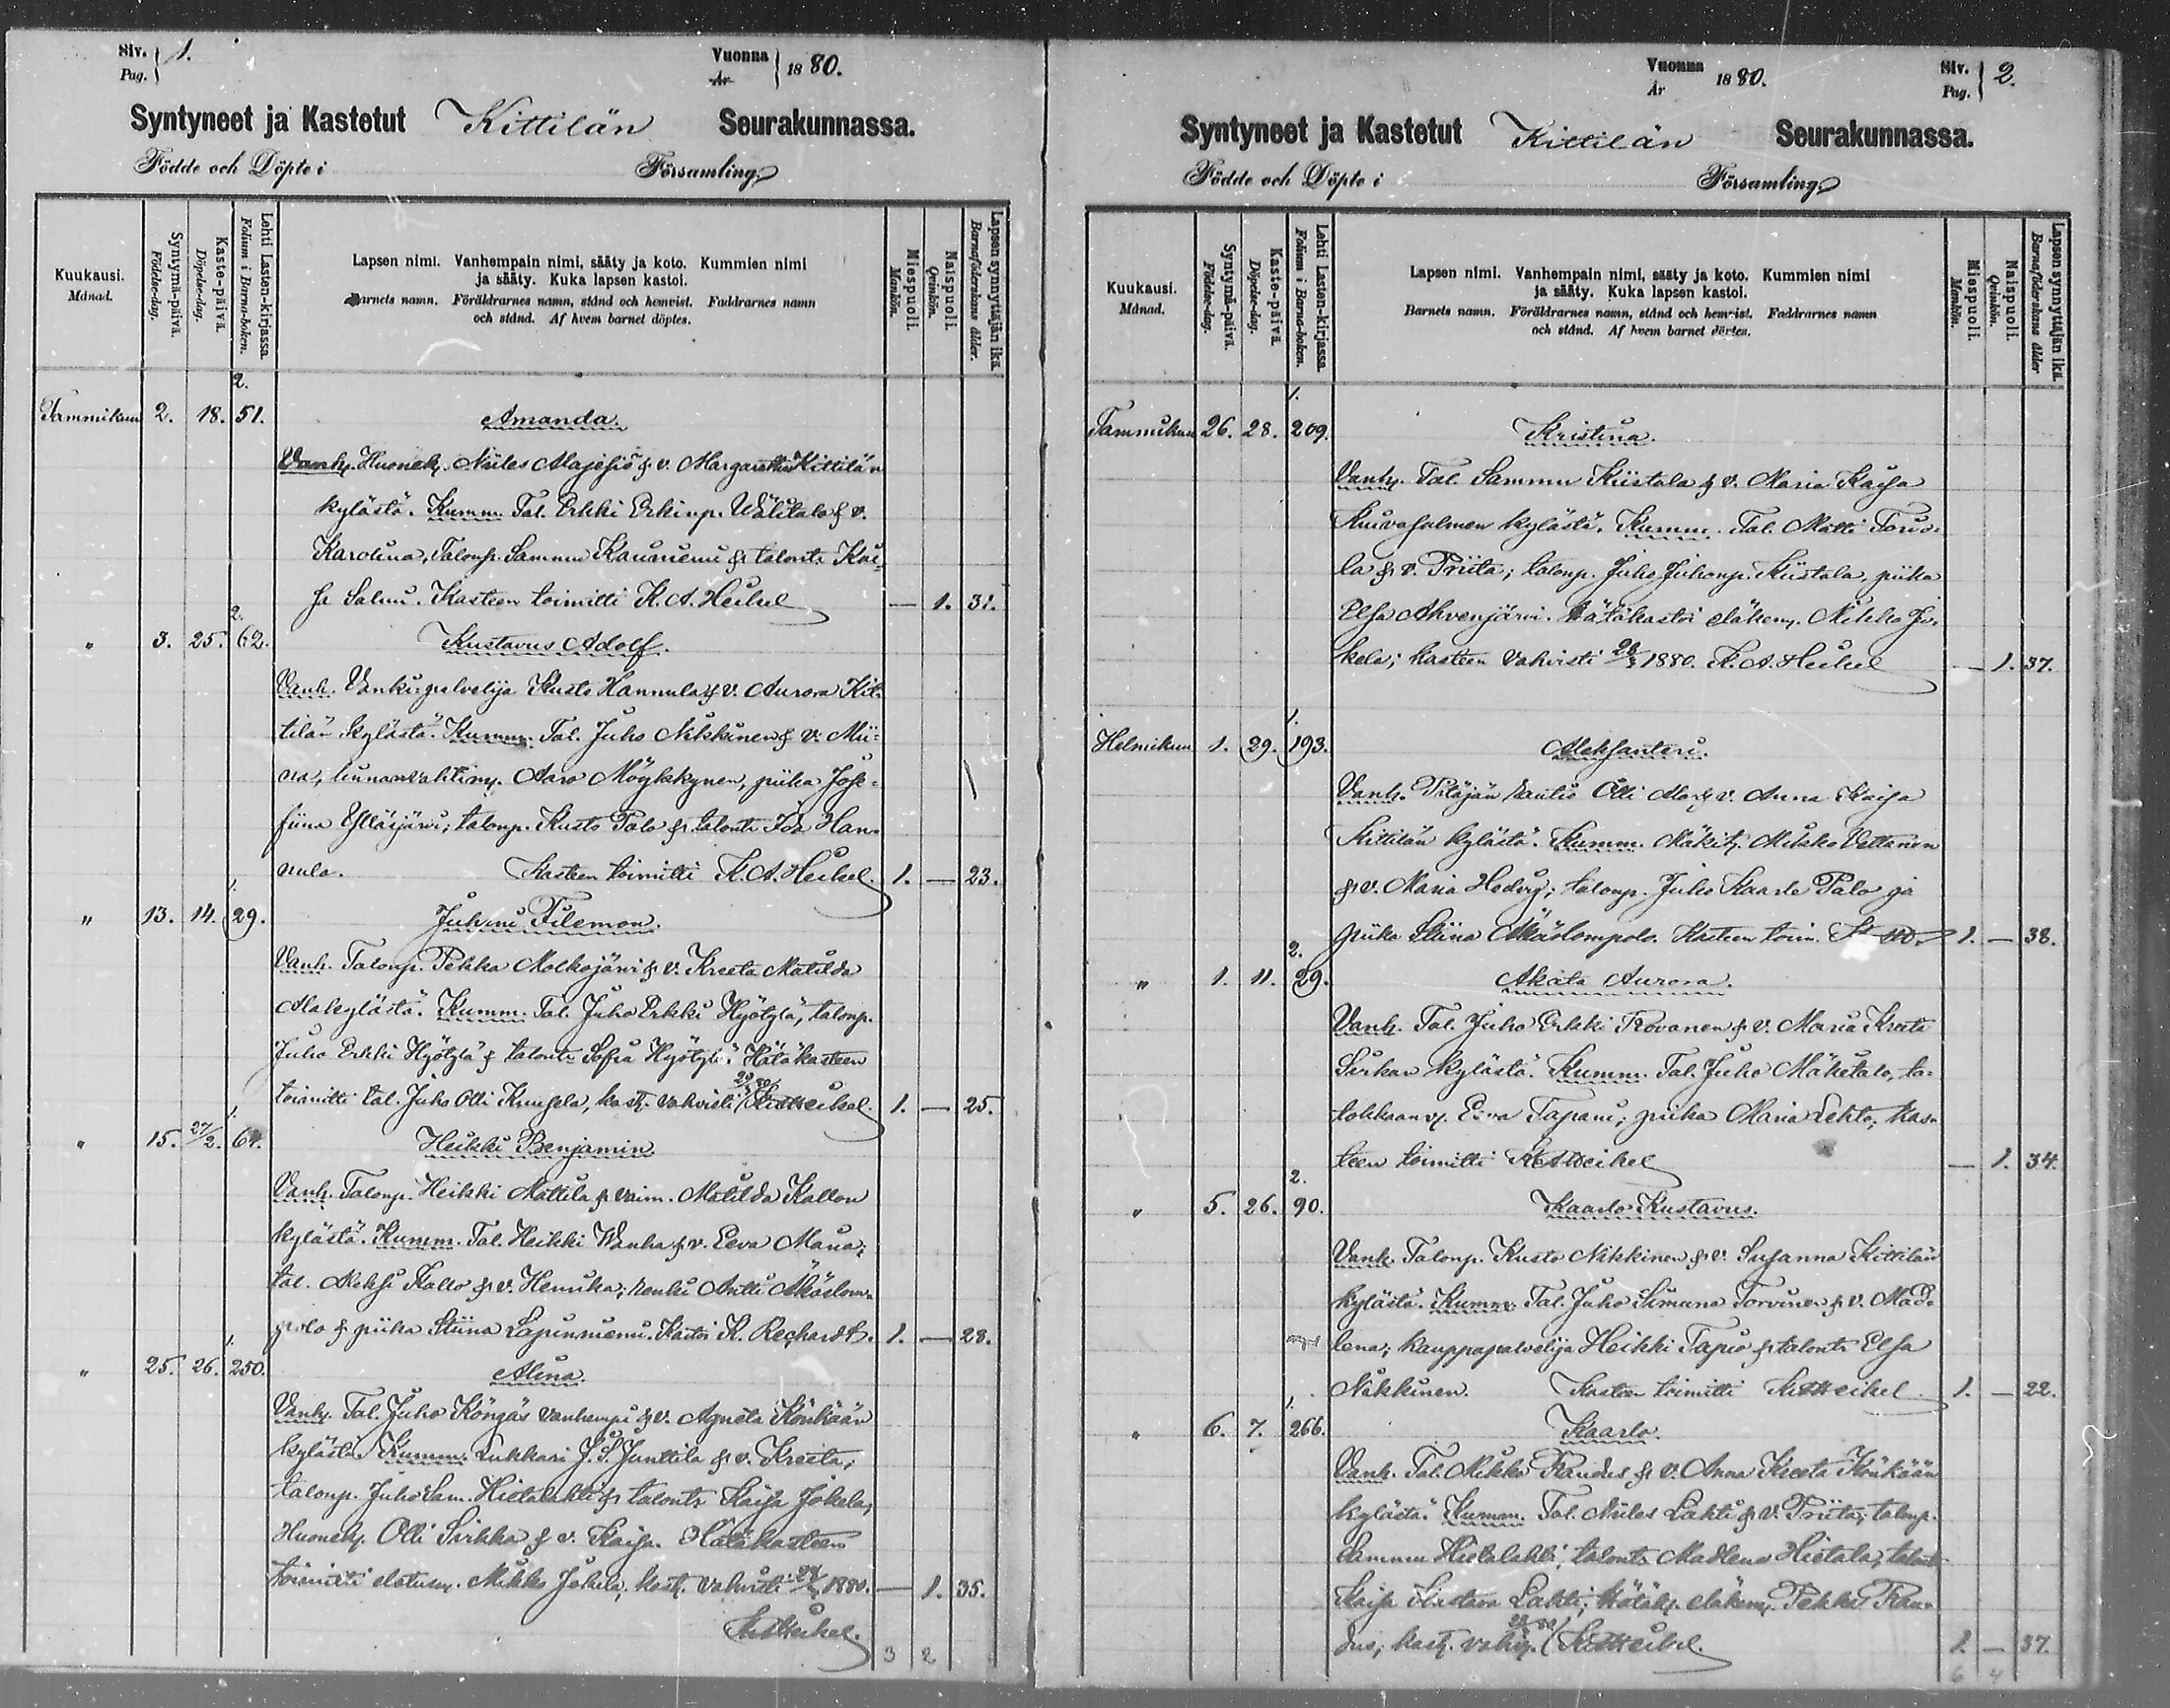 Siv. Pag. 1.
Vuonna År 1880.
Syntyneet ja Kastetut Kittilän Seurakunnassa.
Födde och Döpte i Församling
Kuukausi. Månad.
Syntymä-päivä. Födelse-dag.
Kaste-päivä. Döpelse-dag.
Lehti Lasten-kirjassa. Folium i Barna-boken.
Lapsen nimi. Vanhempain nimi, sääty ja koto. Kummien nimi
ja sääty. Kuka lapsen kastoi.
Barnets namn. Föräldrarnes namn, stånd och hemvist. Faddrarnes namn
och stånd. Af hvem barnet döptes.
Miespuoli. Mankön.
Naispuoli. Qvinkön.
Lapsen synnyttäjän ikä. Barnaföderskans ålder.
2.
Tammikuu 2. 18. 51. Amanda.
Vanh. Huonek. Niiles Alajesiö & v. Margareta Kittilän
kylästä. Kumm. Tal. Erkki Erkinp. Välitalo & v.
Karolina, Talonp. Sammu Kauniemi & talontr. Kai-
sa Salmi. Kasteen toimitti K. A. Heikel — 1. 31.
2.
" 3. 25. 62. Kustavus Adolf.
Vanh. Vankipalvelija Kusto Hannula & v. Aurora Kit-
tilän kylästä. Kumm. Tal. Juho Nikkinen & v. Mii-
na; linnanvahtimy. Aaro Möykkynen, piika Jose-
fiina Ylläsjärvi; talonp. Kusto Palo & talontr. Ida Han-
nula. Kasteen toimitti K. A. Heikel. 1. — 23.
1.
" 13. 14. 29. Juhani Filemon.
Vanh. Talonp. Pekka Molkojärvi & v. Kreeta Matilda
Alakylästä. Kumm. Tal. Juho Erkki Hyötylä, talonp.
Juho Erkki Hyötylä & talontr. Sofia Hyötylä. Hätäkasteen
toimitti tal. Juho Olli Knussela, kast. vahvisti K A Heikel. 1. — 25.
1.
" 15. 27/2. 64. Heikki Benjamin
Vanh. Talonp. Heikki Mattila & vaim. Matilda Kallon
kylästä. Kumm. Tal. Heikki Wanha & v. Eeva Maria;
tal. Aleksi Kallo & v. Henrika; renki Antti Äkäslom-
polo & piika Stiina Lapinniemi. Kastoi K. Rechardt. 1. — 28.
1.
" 25. 26. 250. Alina.
Vanh. Tal. Juho Köngäs vanhempi & v. Agneta Könkään
kylästä. Kumm. Lukkari J. S. Junttila & v. Kreeta;
talonp. Juho Sam. Hietalahti & talontr. Kaisa Jokela;
Huonek. Olli Sirkka & v. Kaisa. Hätäkasteen
toimitti elatusm. Mikko Jokela; kast. vahvisti 1880. — 1. 35.
K A Heikel.
3 2
Vuonna År 1880.
Siv. Pag. 2.
Syntyneet ja Kastetut Kittilän Seurakunnassa.
Födde och Döpte i Församling
Kuukausi. Månad.
Syntymä-päivä. Födelse-dag.
Kaste-päivä. Döpelse-dag.
Lehti Lasten-kirjassa. Folium i Barna-boken.
Lapsen nimi. Vanhempain nimi, sääty ja koto. Kummien nimi
ja sääty. Kuka lapsen kastoi.
Barnets namn. Föräldrarnes namn, stånd och hemvist. Faddrarnes namn
och stånd. Af hvem barnet döptes.
Miespuoli. Mankön.
Naispuoli. Qvinkön.
Lapsen synnyttäjän ikä. Barnaföderskans ålder
1.
Tammikuu 26. 28. 209. Kristina.
Vanh. Tal. Sammu Kiistala & v. Maria Kaisa
Kuivasalmen kylästä. Kumm. Tal. Matti Torvo-
la & v. Priita; talonp. Juho Juhonp. Kiistala, piika
Elsa Ahvenjärvi. Hätäkastoi eläkem. Mikko Jo-
kela; kasteen vahvisti 1880. K. A. Heikel — 1. 37.
1.
Helmikuu 1. 29. 193. Aleksanteri.
Vanh. Pitäjän rautio Olli Ala & v. Anna Kaisa
Kittilän kylästä. Kumm. Mäkit. Mikko Vettanen
& v. Maria Hedvig; talonp. Juho Kaarle Palo ja
piika Stiina Äkäslompolo. Kasteen toim. 1. — 38.
2.
" 1. 11. 29. Akata Aurora.
Vanh. Tal. Juho Erkki Rovanen & v. Maria Kreeta
Sirkan kylästä. Kumm. Tal. Juho Mäkitalo, ta-
lokkaan v. Eeva Tapani; piika Maria Lehto, kas-
teen toimitti K A Heikel — 1. 34.
2.
" 5. 26. 90. Kaarlo Kustavus.
Vanh. Talonp. Kusto Nikkinen & v. Susanna Kittilän
kylästä. Kumm. Tal. Juho Simuna Torvinen & v. Mad-
lena; kauppapalvelija Heikki Tapio & talontr. Elsa
Nikkinen. Kasteen toimitti K A Heikel. 1. — 22.
1.
" 6. 7. 266. Kaarlo.
Vanh. Tal. Mikko Raudus & v. Anna Kreeta Könkään
kylästä. Kumm. Tal. Niiles Lahti & v. Priita; talonp.
Sammu Hietalahti; talontr. Madlena Hietala; talontr.
Kaisa Kustava Lahti; Hätäk. eläkem. Pekka Rau-
dus; kast. vahv. K A Heikel. 1. — 37.
6 4